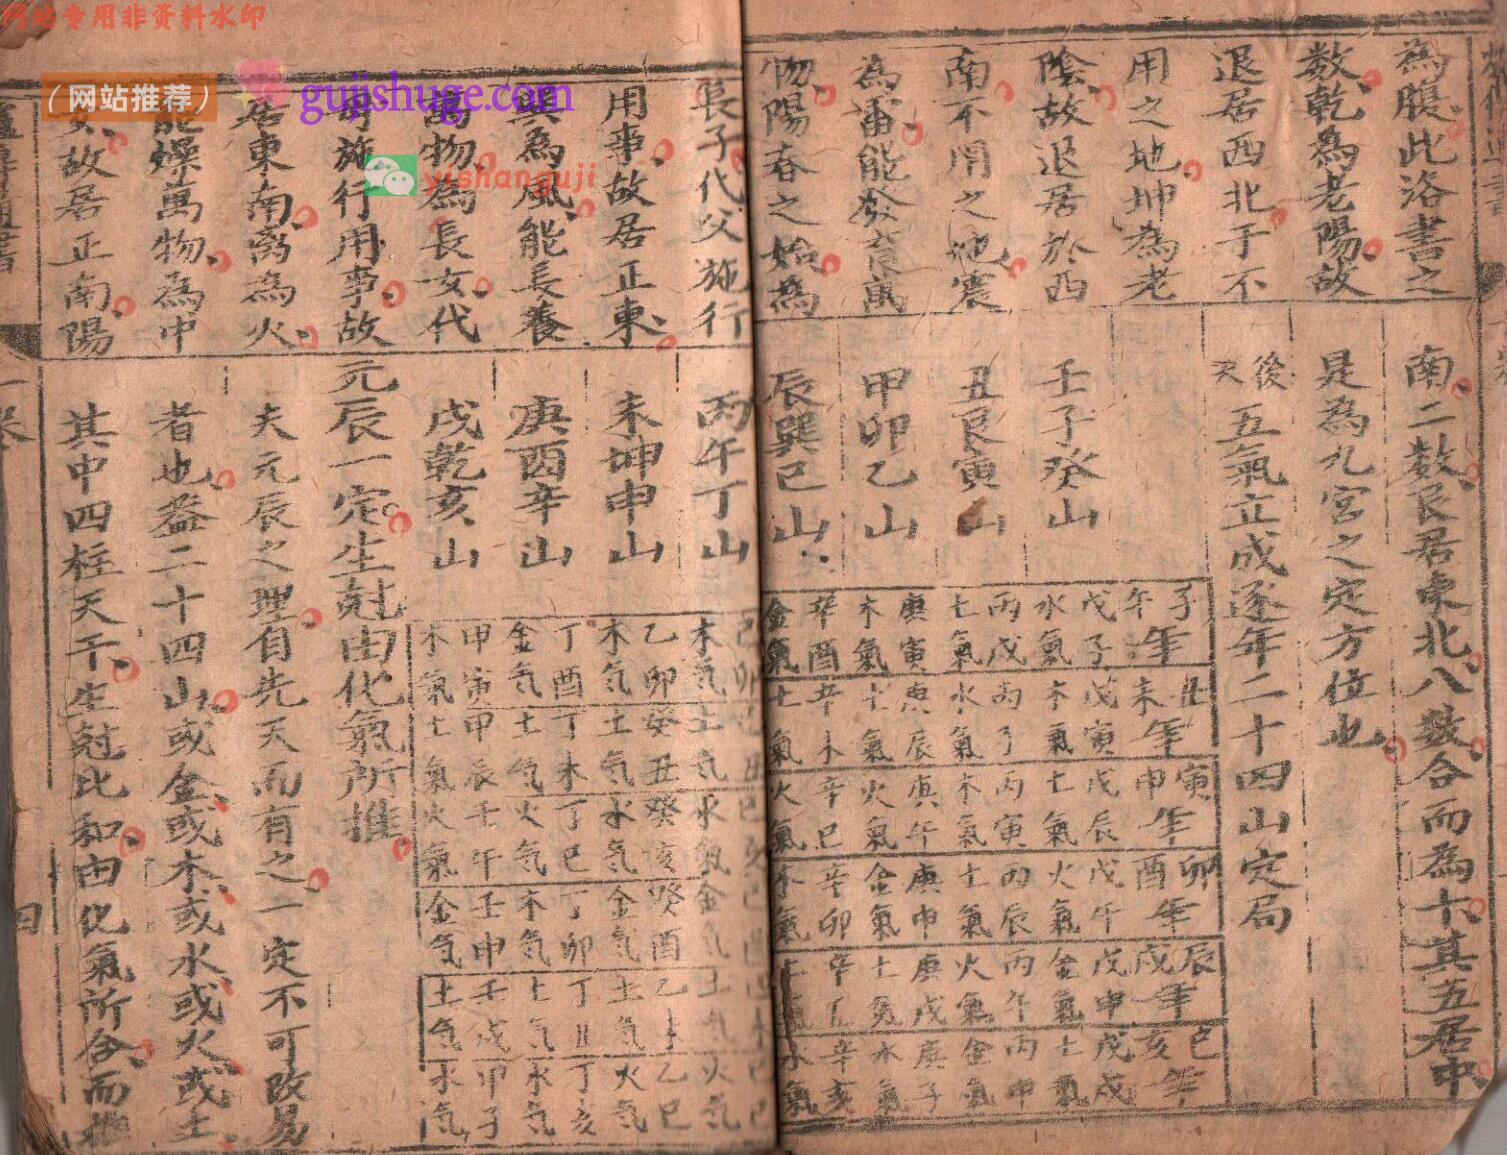 网站专用非资料水印
（网站推荐）
gujishuge.com
yishanguji
為腹此洛書之
数乾為老陽故
退居西北于不
用之地坤為老
陰故退居於西
南不用之地震
為雷能發育萬
物陽春之始為
南二数艮居東北八数合而為十其五居中
是為九宮之定方位也
後天五氣立成逐年二十四山定局
子午年
丑未年
寅申年
卯酉年
辰戌年
巳亥年
壬子癸山
戊子水氣
戊寅木氣
戊辰土氣
戊午火氣
戊申金氣
戊戌土氣
丑艮寅山
丙戌土氣
丙子水氣
丙寅木氣
丙辰土氣
丙午火氣
丙申金氣
甲卯乙山
庚寅木氣
庚辰土氣
庚午火氣
庚申金氣
庚戌土氣
庚子水氣
辰巽巳山
辛酉金氣
辛未土氣
辛巳火氣
辛卯木氣
辛丑土氣
辛亥水氣
長子代父施行
用事故居正東
巽為風能長養
萬物為長女代
母施行用事故
居東南离為火
能燥萬物為中
女故居正南陽
丙午丁山
己卯木氣
己丑土氣
己亥水氣
己酉金氣
己未土氣
己巳火氣
未坤申山
乙卯木氣
癸丑土氣
癸亥水氣
癸酉金氣
乙未土氣
乙巳火氣
庚酉辛山
丁酉金氣
丁未土氣
丁巳火氣
丁卯木氣
丁丑土气
丁亥水気
戌乾亥山
甲寅木氣
甲辰土氣
壬午火氣
壬申金気
壬戌土气
甲子水気
元辰一定生尅由化氣所推
夫元辰之理自先天而有之一定不可改易
者也盖二十四山或金或木或水或火或土
其中四柱天干生尅比和由化氣所合而推
一卷
四